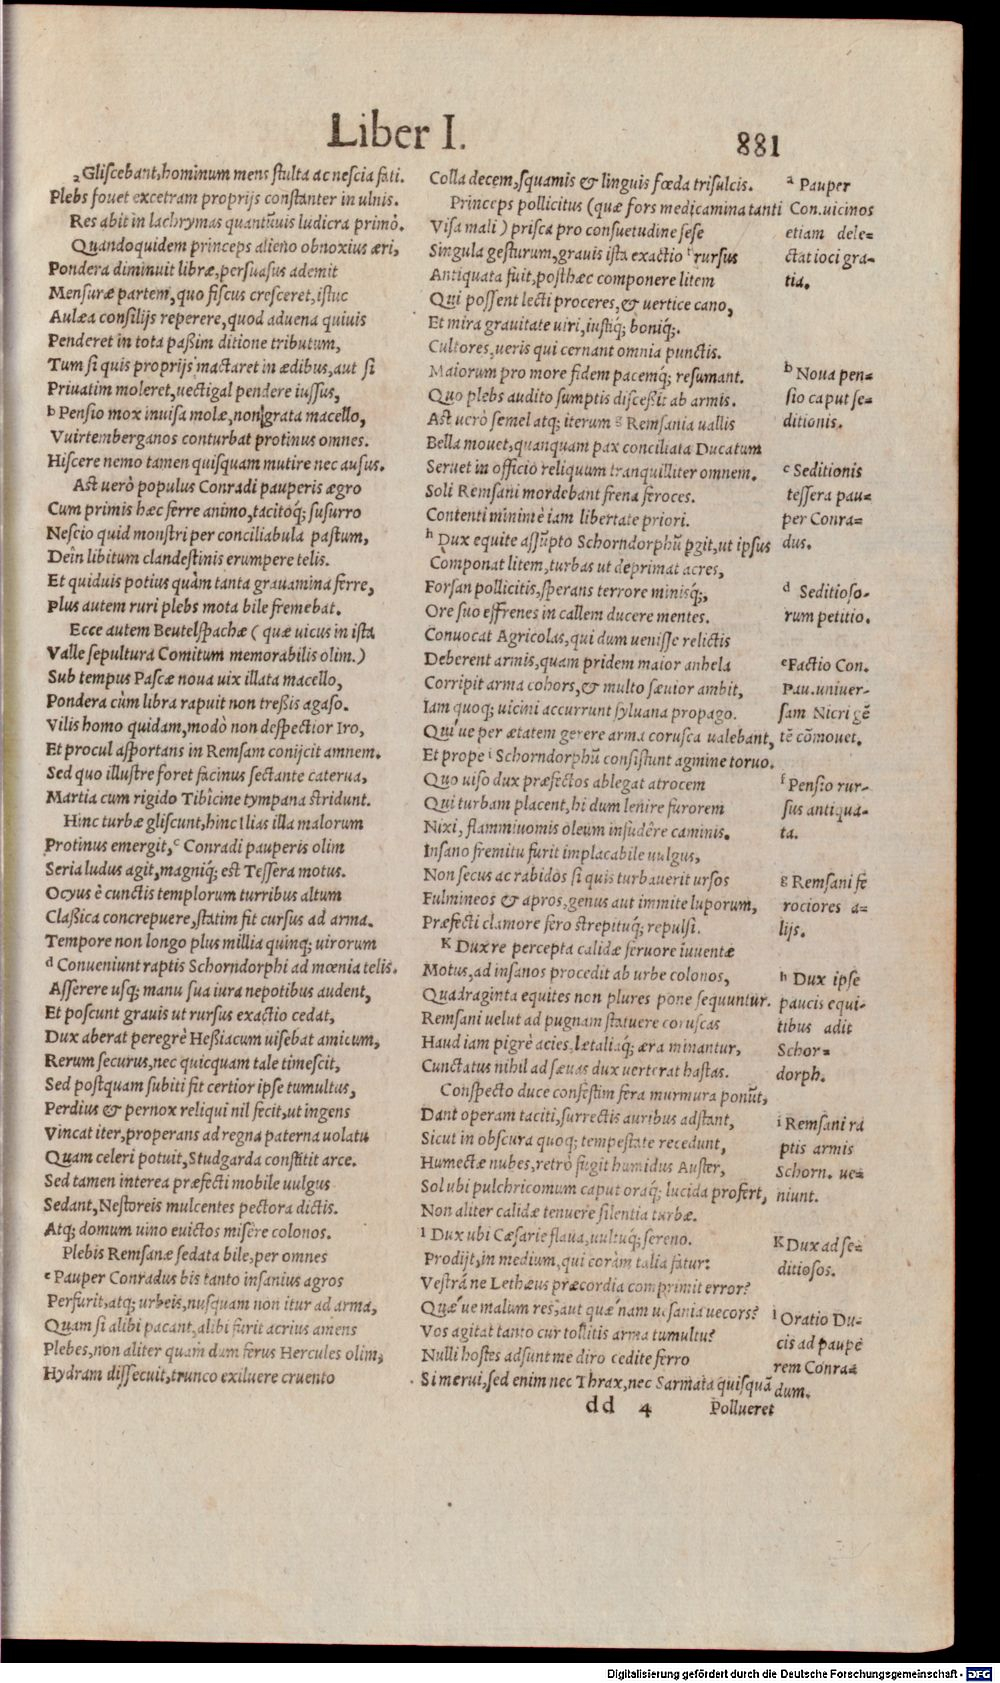 Liber I.
881
ₐGliſcebant, hominum mens ſtulta ac neſcia fati.
Plebs fouet excetram proprijs conſtanter in ulnis.
Res abit in lachrymas quantũuis ludicra primò.
Quandoquidem princeps alieno obnoxius æri,
Pondera diminuit libræ, perſuaſus ademit
Menſuræ partem, quo fiſcus creſceret, iſtuc
Aulæa conſilijs reperere, quod aduena quiuis
Penderet in tota paßim ditione tributum,
Tum ſi quis proprijs mactaret in ædibus, aut ſi
Priuatim moleret, uectigal pendere iuſſus,
ᵇ Penſio mox inuiſa molæ, non grata macello,
Vuirtemberganos conturbat protinus omnes.
Hiſcere nemo tamen quiſquam mutire nec auſus.
Aſt uerò populus Conradi pauperis ægro
Cum primis hæc ferre animo, tacitoq́; ſuſurro
Neſcio quid monſtri per conciliabula paſtum,
Dein libitum clandeſtinis erumpere telis.
Et quiduis potius quàm tanta grauamina ferre,
Plus autem ruri plebs mota bile fremebat.
Ecce autem Beutelſpachæ ( quæ uicus in iſta
Valle ſepultura Comitum memorabilis olim.)
Sub tempus Paſcæ noua uix illata macello,
Pondera cùm libra rapuit non treßis agaſo.
Vilis homo quidam, modò non deſpectior Iro,
Et procul aſportans in Remſam conijcit amnem.
Sed quo illuſtre foret facinus ſectante caterua,
Martia cum rigido Tibicine tympana ſtridunt.
Hinc turbæ gliſcunt, hinc Ilias illa malorum
Protinus emergit, ᶜ Conradi pauperis olim
Seria ludus agit, magniq́; eſt Teſſera motus.
Ocyus è cunctis templorum turribus altum
Claßica concrepuere, ſtatim fit curſus ad arma.
Tempore non longo plus millia quinq; uirorum
ᵈ Conueniunt raptis Schorndorphi ad mœnia telis.
Aſſerere uſq; manu ſua iura nepotibus audent,
Et poſcunt grauis ut rurſus exactio cedat,
Dux aberat peregrè Heßiacum uiſebat amicum,
Rerum ſecurus, nec quicquam tale timeſcit,
Sed poſtquam ſubiti fit certior ipſe tumultus,
Perdius & pernox reliqui nil fecit, ut ingens
Vincat iter, properans ad regna paterna uolatu
Quam celeri potuit, Studgarda conſtitit arce.
Sed tamen interea præfecti mobile uulgus
Sedant, Neſtoreis mulcentes pectora dictis.
Atq; domum uino euictos miſère colonos.
Plebis Remſanæ ſedata bile, per omnes
ᵉ Pauper Conradus bis tanto inſanius agros
Perfurit, atq; urbeis, nuſquam non itur ad arma,
Quam ſi alibi pacant, alibi furit acrius amens
Plebes, non aliter quam dum ferus Hercules olim,
Hydram diſſecuit, trunco exiluere cruento
Colla decem, ſquamis & linguis fœda triſulcis.
Princeps pollicitus (quæ fors medicamina tanti
Viſa mali ) priſca pro conſuetudine ſeſe
Singula geſturum, grauis iſta exactio ᶠrurſus
Antiquata fuit, poſthæc componere litem
Qui poſſent lecti proceres, & vertice cano,
Et mira grauitate uiri, iuſtiq́; boniq́;.
Cultores, ueris qui cernant omnia punctis.
Maiorum pro more fidem pacemq́; reſumant.
Quo plebs audito ſumptis diſceßit ab armis.
Aſt uerò ſemel atq; iterum ᵍ Remſania uallis
Bella mouet, quanquam pax conciliata Ducatum
Seruet in officio reliquum tranquilliter omnem.
Soli Remſani mordebant frena feroces.
Contenti minimè iam libertate priori.
ʰ Dux equite aſſũpto Schorndorphũ pgit, ut ipſus
Componat litem, turbas ut deprimat acres,
Forſan pollicitis, ſperans terrore miniſq́;,
Ore ſuo effrenes in callem ducere mentes.
Conuocat Agricolas, qui dum ueniſſe relictis
Deberent armis, quam pridem maior anhela
Corripit arma cohors, & multo ſæuior ambit,
Iam quoq; uicini accurrunt ſyluana propago.
Qui ue per ætatem gerere arma coruſca ualebant,
Et prope ⁱ Schorndorphũ conſiſtunt agmine toruo.
Quo uiſo dux præfectos ablegat atrocem
Qui turbam placent, hi dum lenire furorem
Nixi, flammiuomis oleum inſudêre caminis.
Inſano fremitu furit implacabile uulgus,
Non ſecus ac rabidos ſi quis turbauerit urſos
Fulmineos & apros, genus aut immite luporum,
Præfecti clamore fero ſtrepituq́; repulſi.
ᴷ Dux re percepta calidæ feruore iuuentæ
Motus, ad inſanos procedit ab urbe colonos,
Quadraginta equites non plures pone ſequuntur.
Remſani uelut ad pugnam ſtatuere coruſcas
Haud iam pigrè acies, lætaliaq́; æra minantur,
Cunctatus nihil ad ſæuas dux uerterat haſtas.
Conſpecto duce confeſtim fera murmura ponũt,
Dant operam taciti, ſurrectis auribus adſtant,
Sicut in obſcura quoq; tempeſtate recedunt,
Humectæ nubes, retrò fugit humidus Auſter,
Sol ubi pulchricomum caput oraq́; lucida profert,
Non aliter calidæ tenuere ſilentia turbæ.
ˡ Dux ubi Cæſarie flaua, uultuq́; ſereno.
Prodijt, in medium, qui coràm talia fatur:
Veſtrá ne Lethæus præcordia comprimit error?
Quæ ue malum res, aut quæ nam ueſania uecors?
Vos agitat tanto cur tollitis arma tumultu?
Nulli hoſtes adſunt me diro cedite ferro
Si merui, ſed enim nec Thrax, nec Sarmata quiſquã
dd 4
Pollueret
ᵃ Pauper
Con. uicinos
etiam dele=
ctat ioci gra-
tia.
ᵇ Noua pen=
ſio caput ſe=
ditionis.
ᶜ Seditionis
teſſera pau=
per Conra=
dus.
ᵈ Seditioſo-
rum petitio.
ᵉFactio Con.
Pau. uniuer-
ſam Nicri gẽ
tẽ cõmouet.
ᶠ Penſio rur-
ſus antiqua-
ta.
ᵍ Remſani fe
rociores a-
lijs.
ʰ Dux ipſe
paucis equi-
tibus adit
Schor=
dorph.
ⁱ Remſani ra
ptis armis
Schorn. ue=
niunt.
ᴷ Dux ad ſe=
ditioſos.
ˡ Oratio Du-
cis ad paupe
rem Conra=
dum.
Digitalisierung gefördert durch die Deutsche Forschungsgemeinschaft - DFG